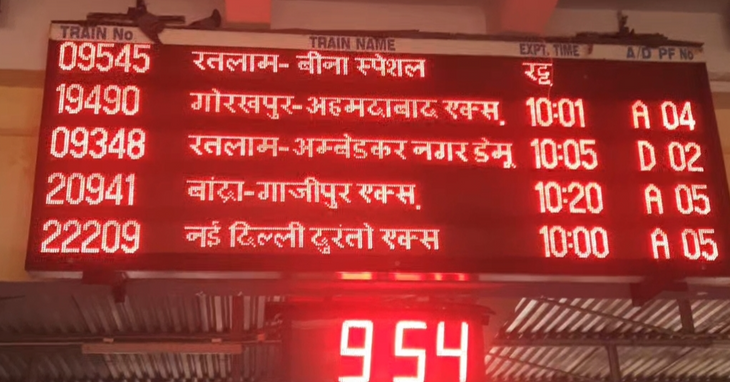 TRAIN No TRAIN NAME EXPT. TIME A/D PF No
09545 रतलाम- बीना स्पेशल रद्द
19490 गोरखपुर-अहमदाबाद एक्स. 10:01 A 04
09348 रतलाम-अम्बेडकर नगर डेमू 10:05 D 02
20941 बांद्रा-गाजीपुर एक्स. 10:20 A 05
22209 नई दिल्ली दुरंतो एक्स 10:00 A 05
9 54